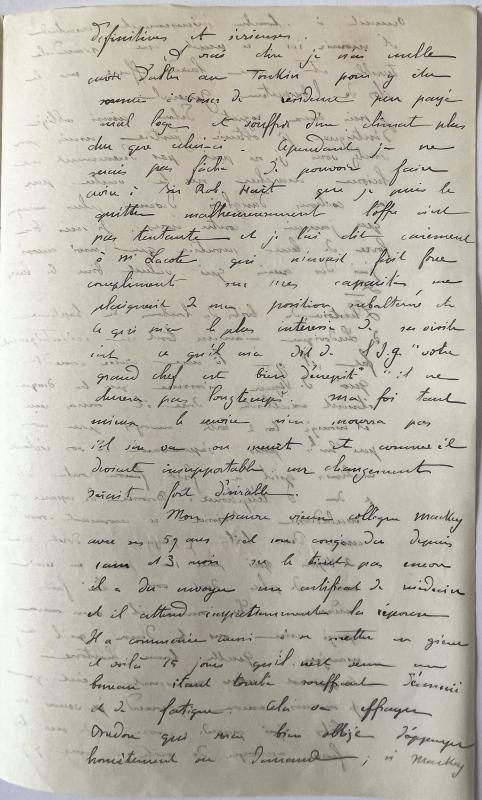 définitives et sérieuses.
À vrai dire je n'ai nulle
envie d'aller au Tonkin pour y être
à bord de résidence peu payé
mal logé et souffrir d'un climat plus
dur que celui-ci. Cependant je ne
suis pas fâché de pouvoir faire
croire à Sir Rob. Hart que je puis le
quitter malheureusement l'offre n'est
pas tentante et je l'ai dit carrément
à Mr Lacote qui m'avait fait force
compliments sur mes capacités, me
plaignant de ma position subalterne et
ce qui m'a le plus intéressé de sa visite
est ce qu'il m'a dit de S.I.G. "votre
grand chef est bien décrépit" "il ne
durera pas longtemps". Ma foi tant
mieux le service n'en mourra pas
s'il s'en va ou meurt. et comme il
devient insupportable un changement
serait fort désirable.
Mon pauvre vieux collègue MacKey
avec ses 59 ans et son congé dû depuis
1 an et 3 mois ne le tient pas encore
il a dû envoyer un certificat de médecin
et il attend impatiemment la réponse
Il a commencé aussi à se mettre en grève
et voilà 15 jours qu'il n'est venu au
bureau étant tombé souffrant d'ennui
et de fatigue. Cela va effrayer
Oudon qui sera bien obligé d'appuyer
honnêtement sa demande ; si MacKey